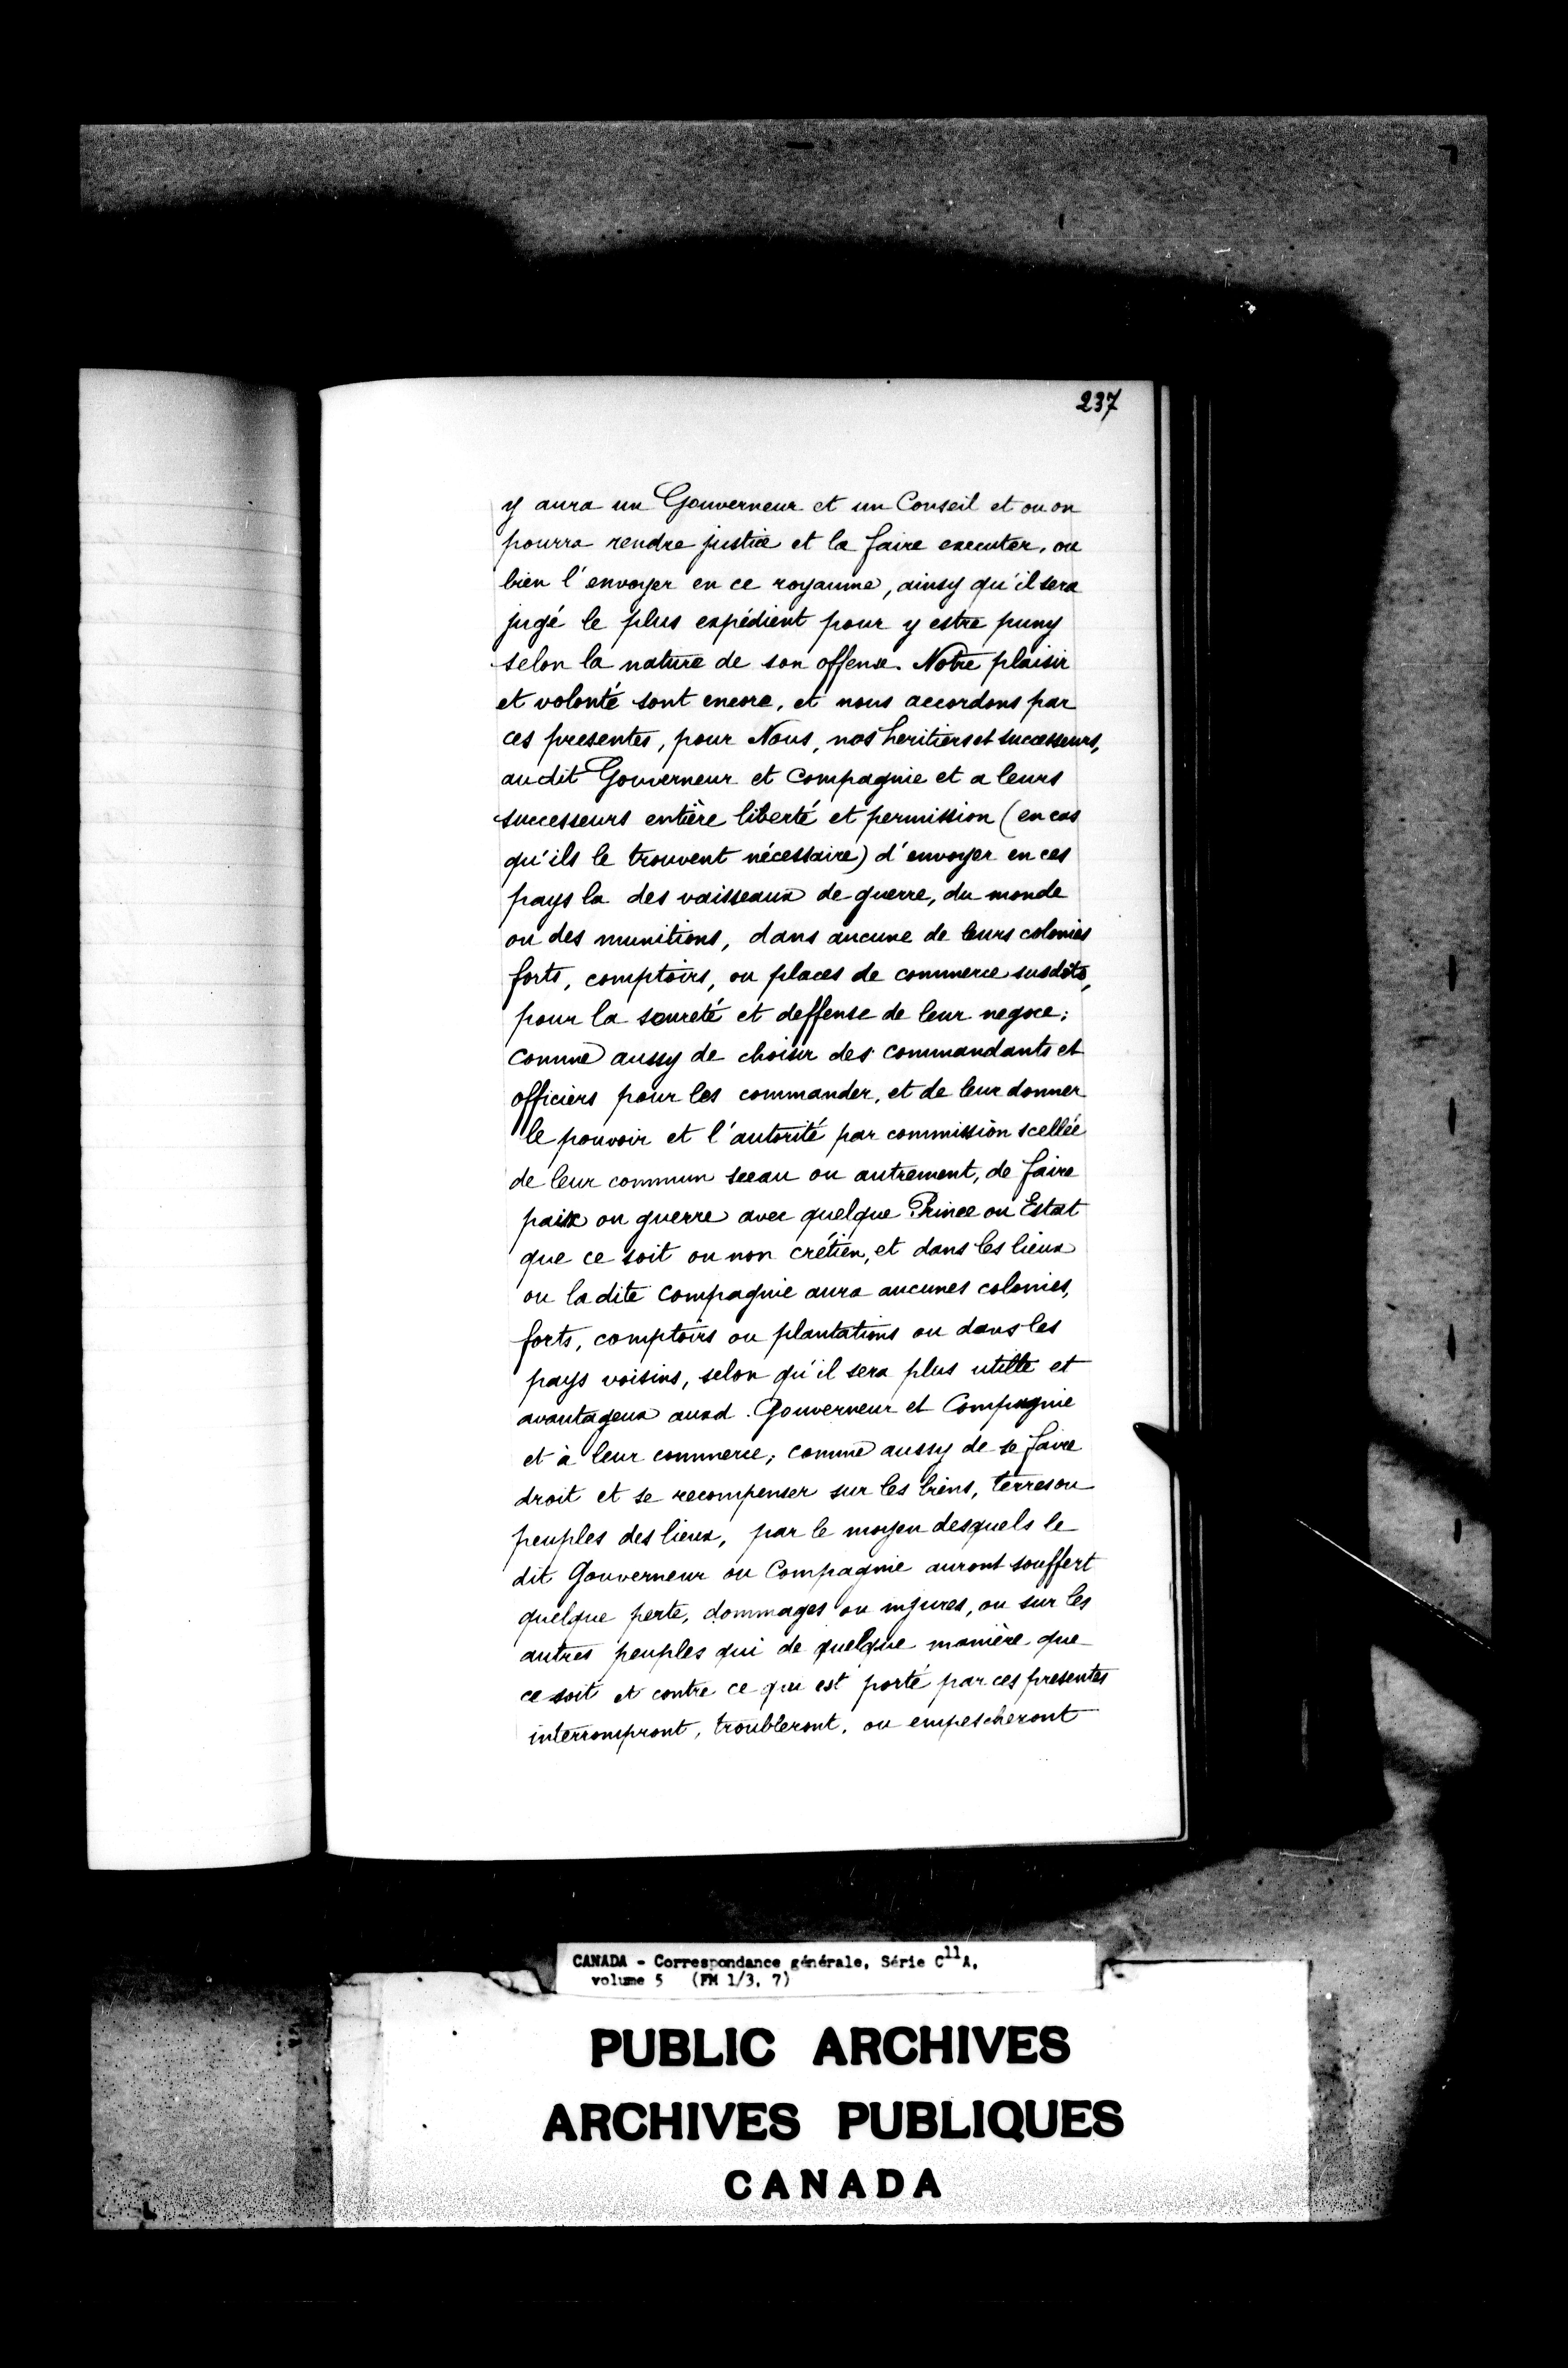 237
y aura un Gouverneur et un Conseil et ou on
pourra rendre justice et la faire executer, ou
bien l'envoyer en ce royaume, ainsy qu'il sera
jugé le plus expédient pour y estre puny
selon la nature de son offense. Notre plaisir
et volonté sont encore, et nous accordons par
ces presentes, pour Nous, nos heritiers et successeurs,
audit Gouverneur et Compagnie et a leurs
successeurs entière liberté et permission (en cas
qu'ils le trouvent nécessaire) d'envoyer en ces
pays la des vaisseaux de guerre, du monde
ou des munitions, dans aucune de leurs colonies
forts, comptoirs, ou places de commerce susdits,
pour la seureté et deffense de leur negoce;
comme aussy de choisir des commandants et
officiers pour les commander, et de leur donner
le pouvoir et l'autorité par commission scellée
de leur commun sceau ou autrement, de faire
paix ou guerre avec quelque Prince ou Estat
que ce soit ou non crétien, et dans les lieux
ou la dite compagnie aura aucunes colonies,
forts, comptoirs ou plantations ou dans les
pays voisins, selon qu'il sera plus utille et
avantageux aud. Gouverneur et Compagnie
et à leur commerce; comme aussy de se faire
droit et se recompenser sur les biens, terres ou
peuples des lieux, par le moyen desquels le
dit Gouverneur ou Compagnie auront souffert
quelque perte, dommages ou injures, ou sur les
autres peuples qui de quelque manière que
ce soit et contre ce qui est porté par ces presentes
interrompront, troubleront, ou empescheront
CANADA - Correspondance générale, Série C11A,
volume 5 (FM 1/3, 7)
PUBLIC ARCHIVES
ARCHIVES PUBLIQUES
CANADA